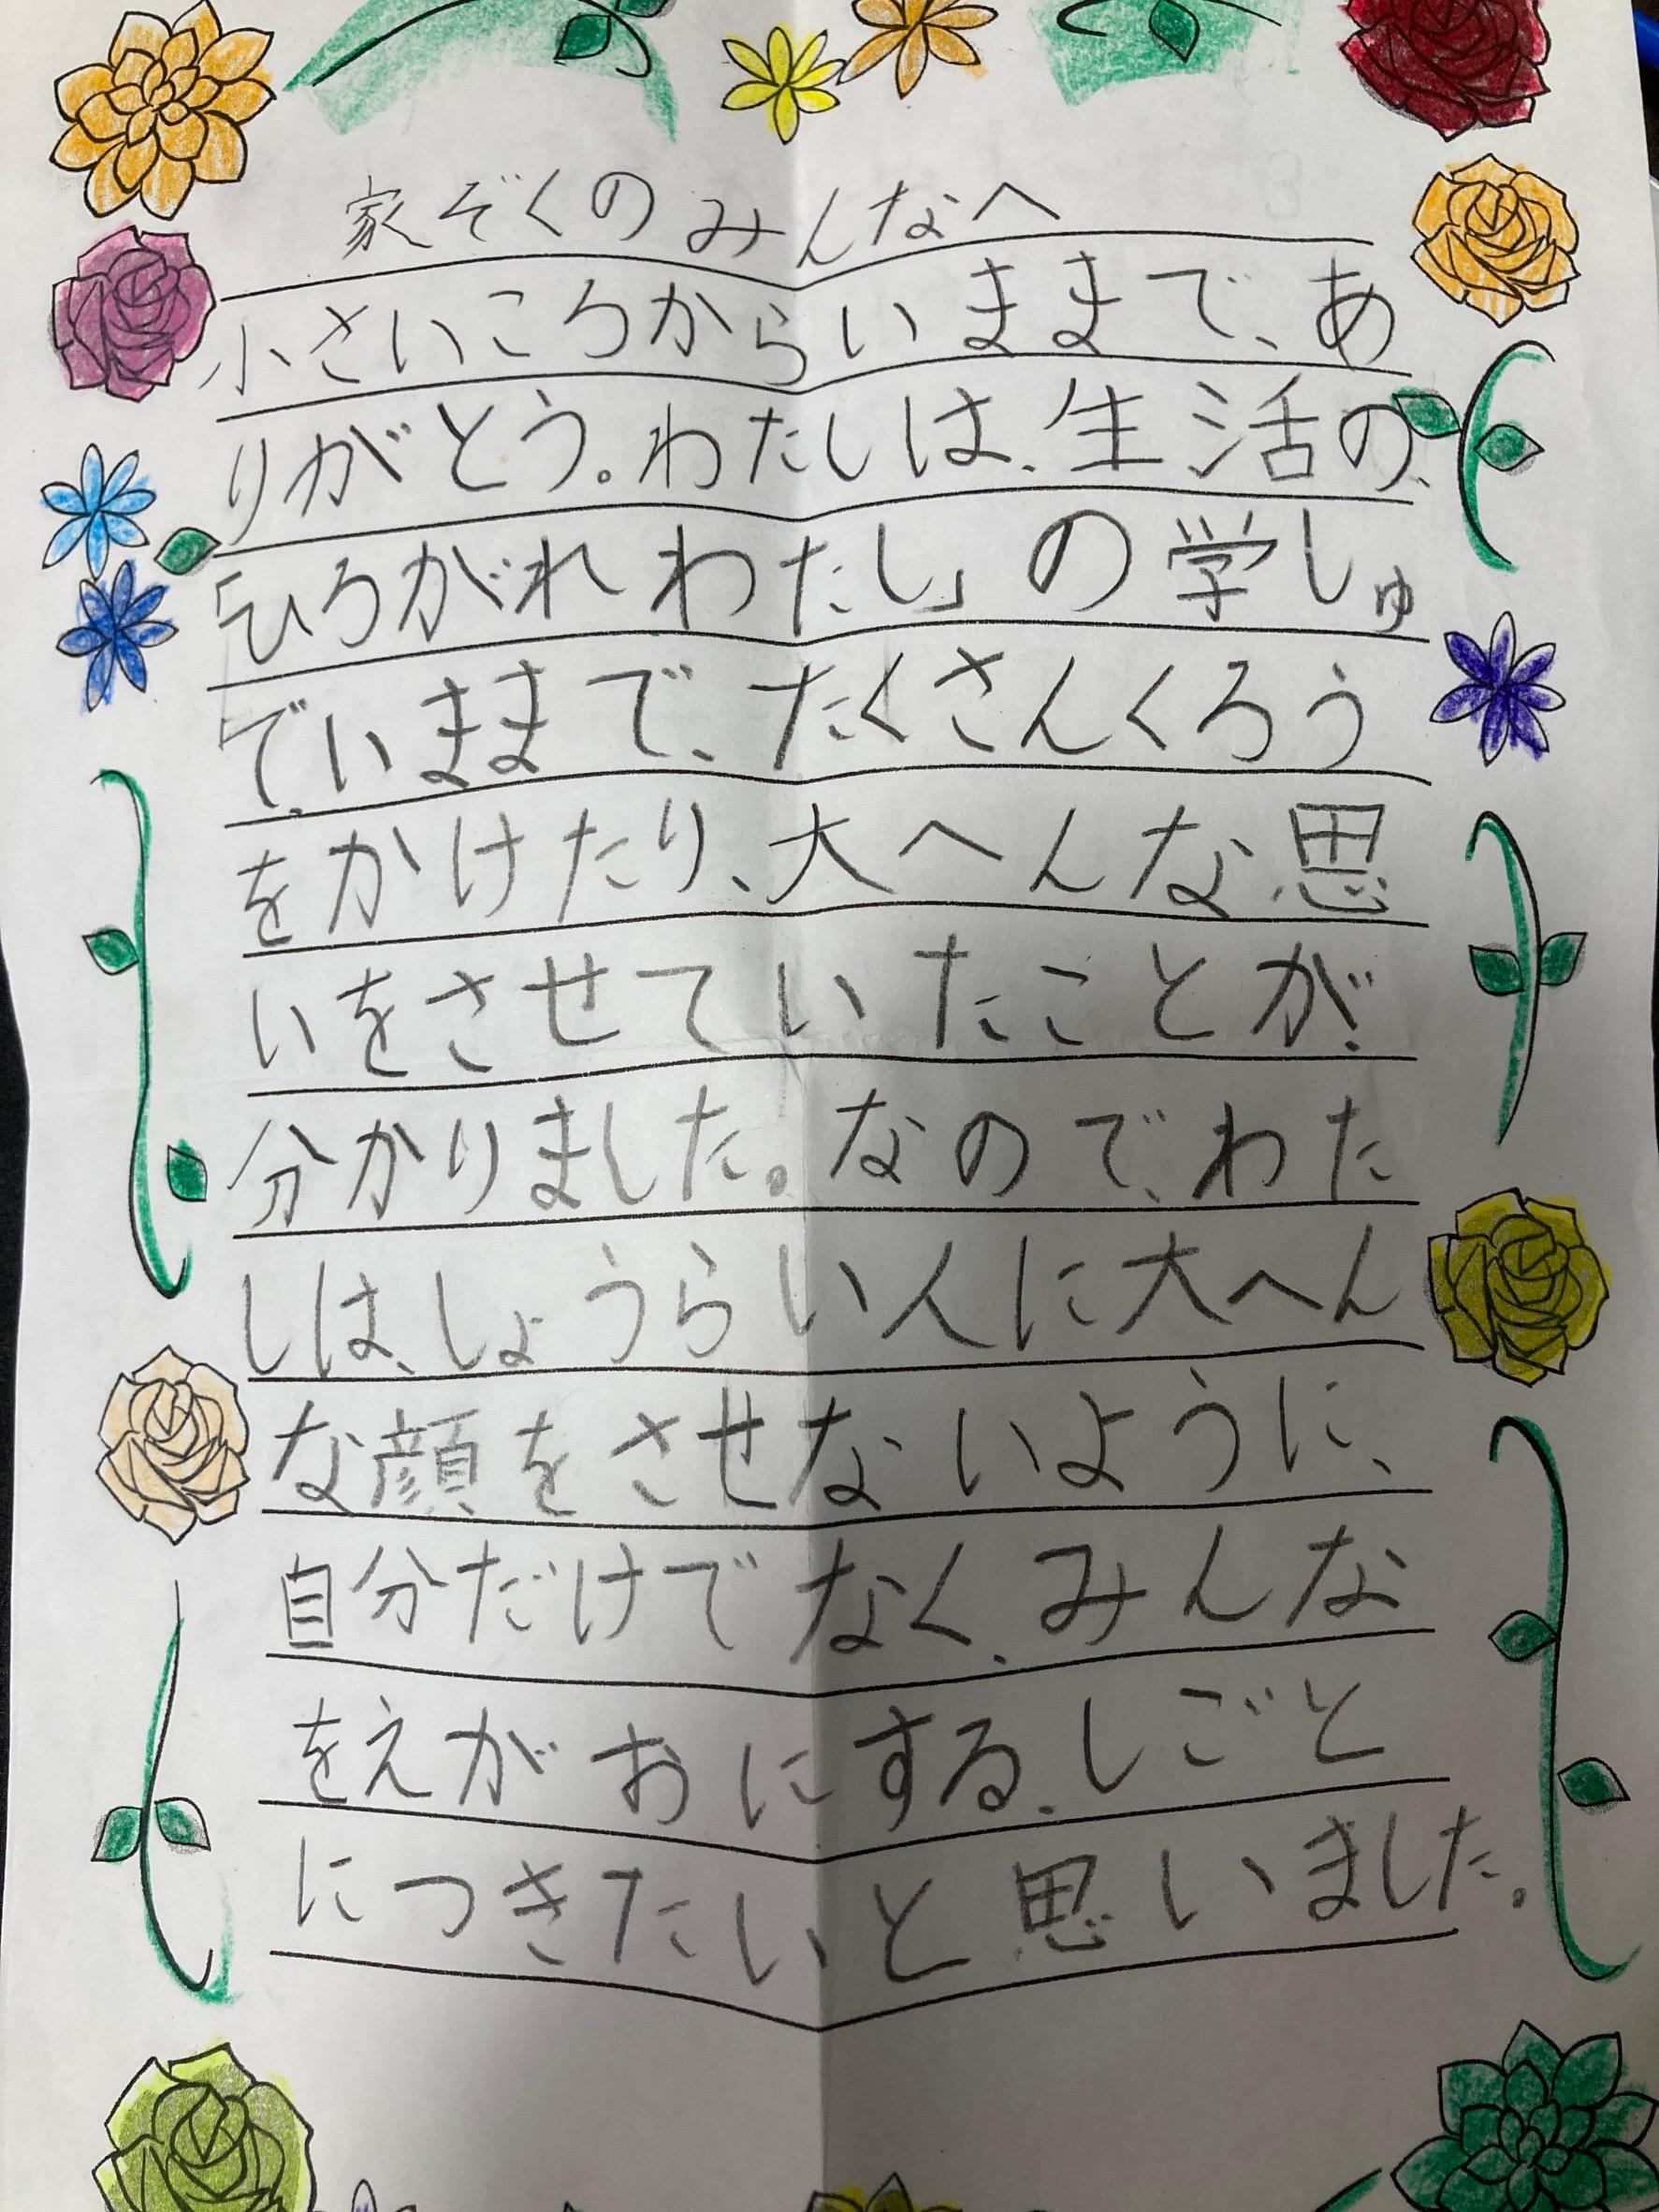 家ぞくのみんなへ
小さいころからいままで、あ
りがとう。わたしは、生活の、
「ひろがれわたし」の学しゅ
で、いままで、たくさんくろう
をかけたり、大へんな思
いをさせていたことが、
分かりました。なので、わた
しは、しょうらい人に大へん
な顔をさせないように、
自分だけでなく、みんな
をえがおにする、しごと
につきたいと思いました。